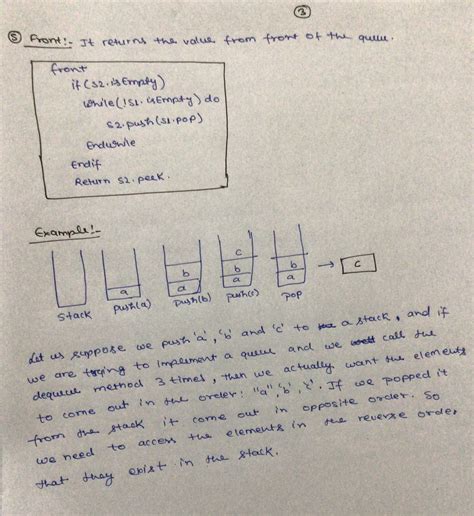 3
5 Front:- It returns the value from front of the queue.
front
if (s2.isEmpty)
while(!s1.isEmpty) do
s2.push(s1.pop)
Endwhile
Endif
Return s2.peek.
Example:-
a
b
a
c
b
a
b
a
→ c
stack push(a) push(b) push(c) pop
Let us suppose we push 'a', 'b' and 'c' to a stack, and if
we are trying to implement a queue and we call the
dequeue method 3 times, then we actually want the elements
to come out in the order: "a", 'b', 'c'. If we popped it
from the stack it come out in opposite order. So
we need to access the elements in the reverse order
that they exist in the stack.